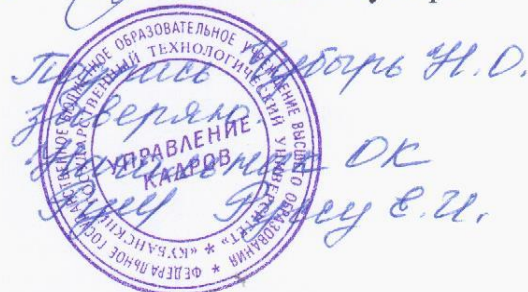 Подпись Н.О.
заверяю.
Начальник ОК
Е.И.
ФЕДЕРАЛЬНОЕ ГОСУДАРСТВЕННОЕ БЮДЖЕТНОЕ ОБРАЗОВАТЕЛЬНОЕ УЧРЕЖДЕНИЕ ВЫСШЕГО ОБРАЗОВАНИЯ *
«КУБАНСКИЙ ГОСУДАРСТВЕННЫЙ ТЕХНОЛОГИЧЕСКИЙ УНИВЕРСИТЕТ» *
УПРАВЛЕНИЕ
КАДРОВ